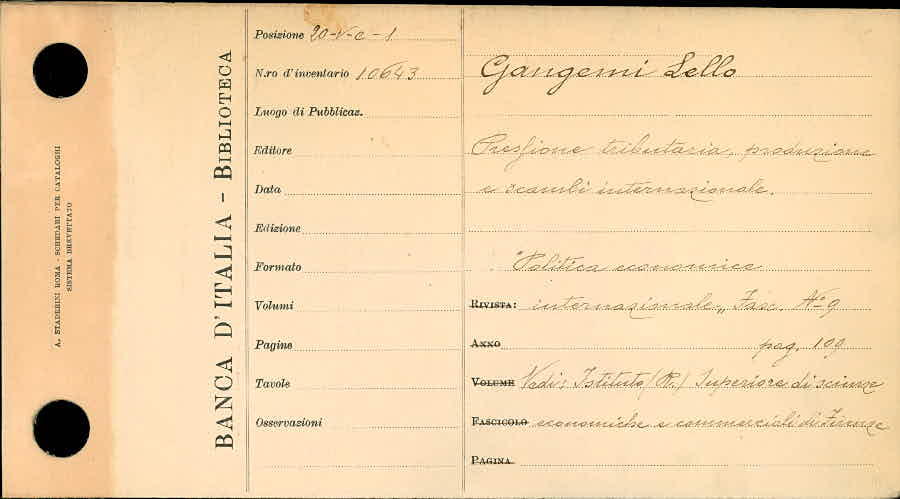 A. STADERINI ROMA - SCHEDARI PER CATALOGHI
SISTEMA BREVETTATO
BANCA D'ITALIA - BIBLIOTECA
Posizione 20-V-c-1
N.ro d'inventario 10643
Luogo di Pubblicaz.
Editore
Data
Edizione
Formato
Volumi
Pagine
Tavole
Osservazioni
Gangemi Lello
Pressione tributaria, produzione
e scambi internazionale.
"Politica economica
RIVISTA: internazionale„ Fasc. No 9
ANNO pag. 109
VOLUME Vedi: Istituto (R.) Superiore di scienze
FASCICOLO economiche e commerciali di Firenze
PAGINA